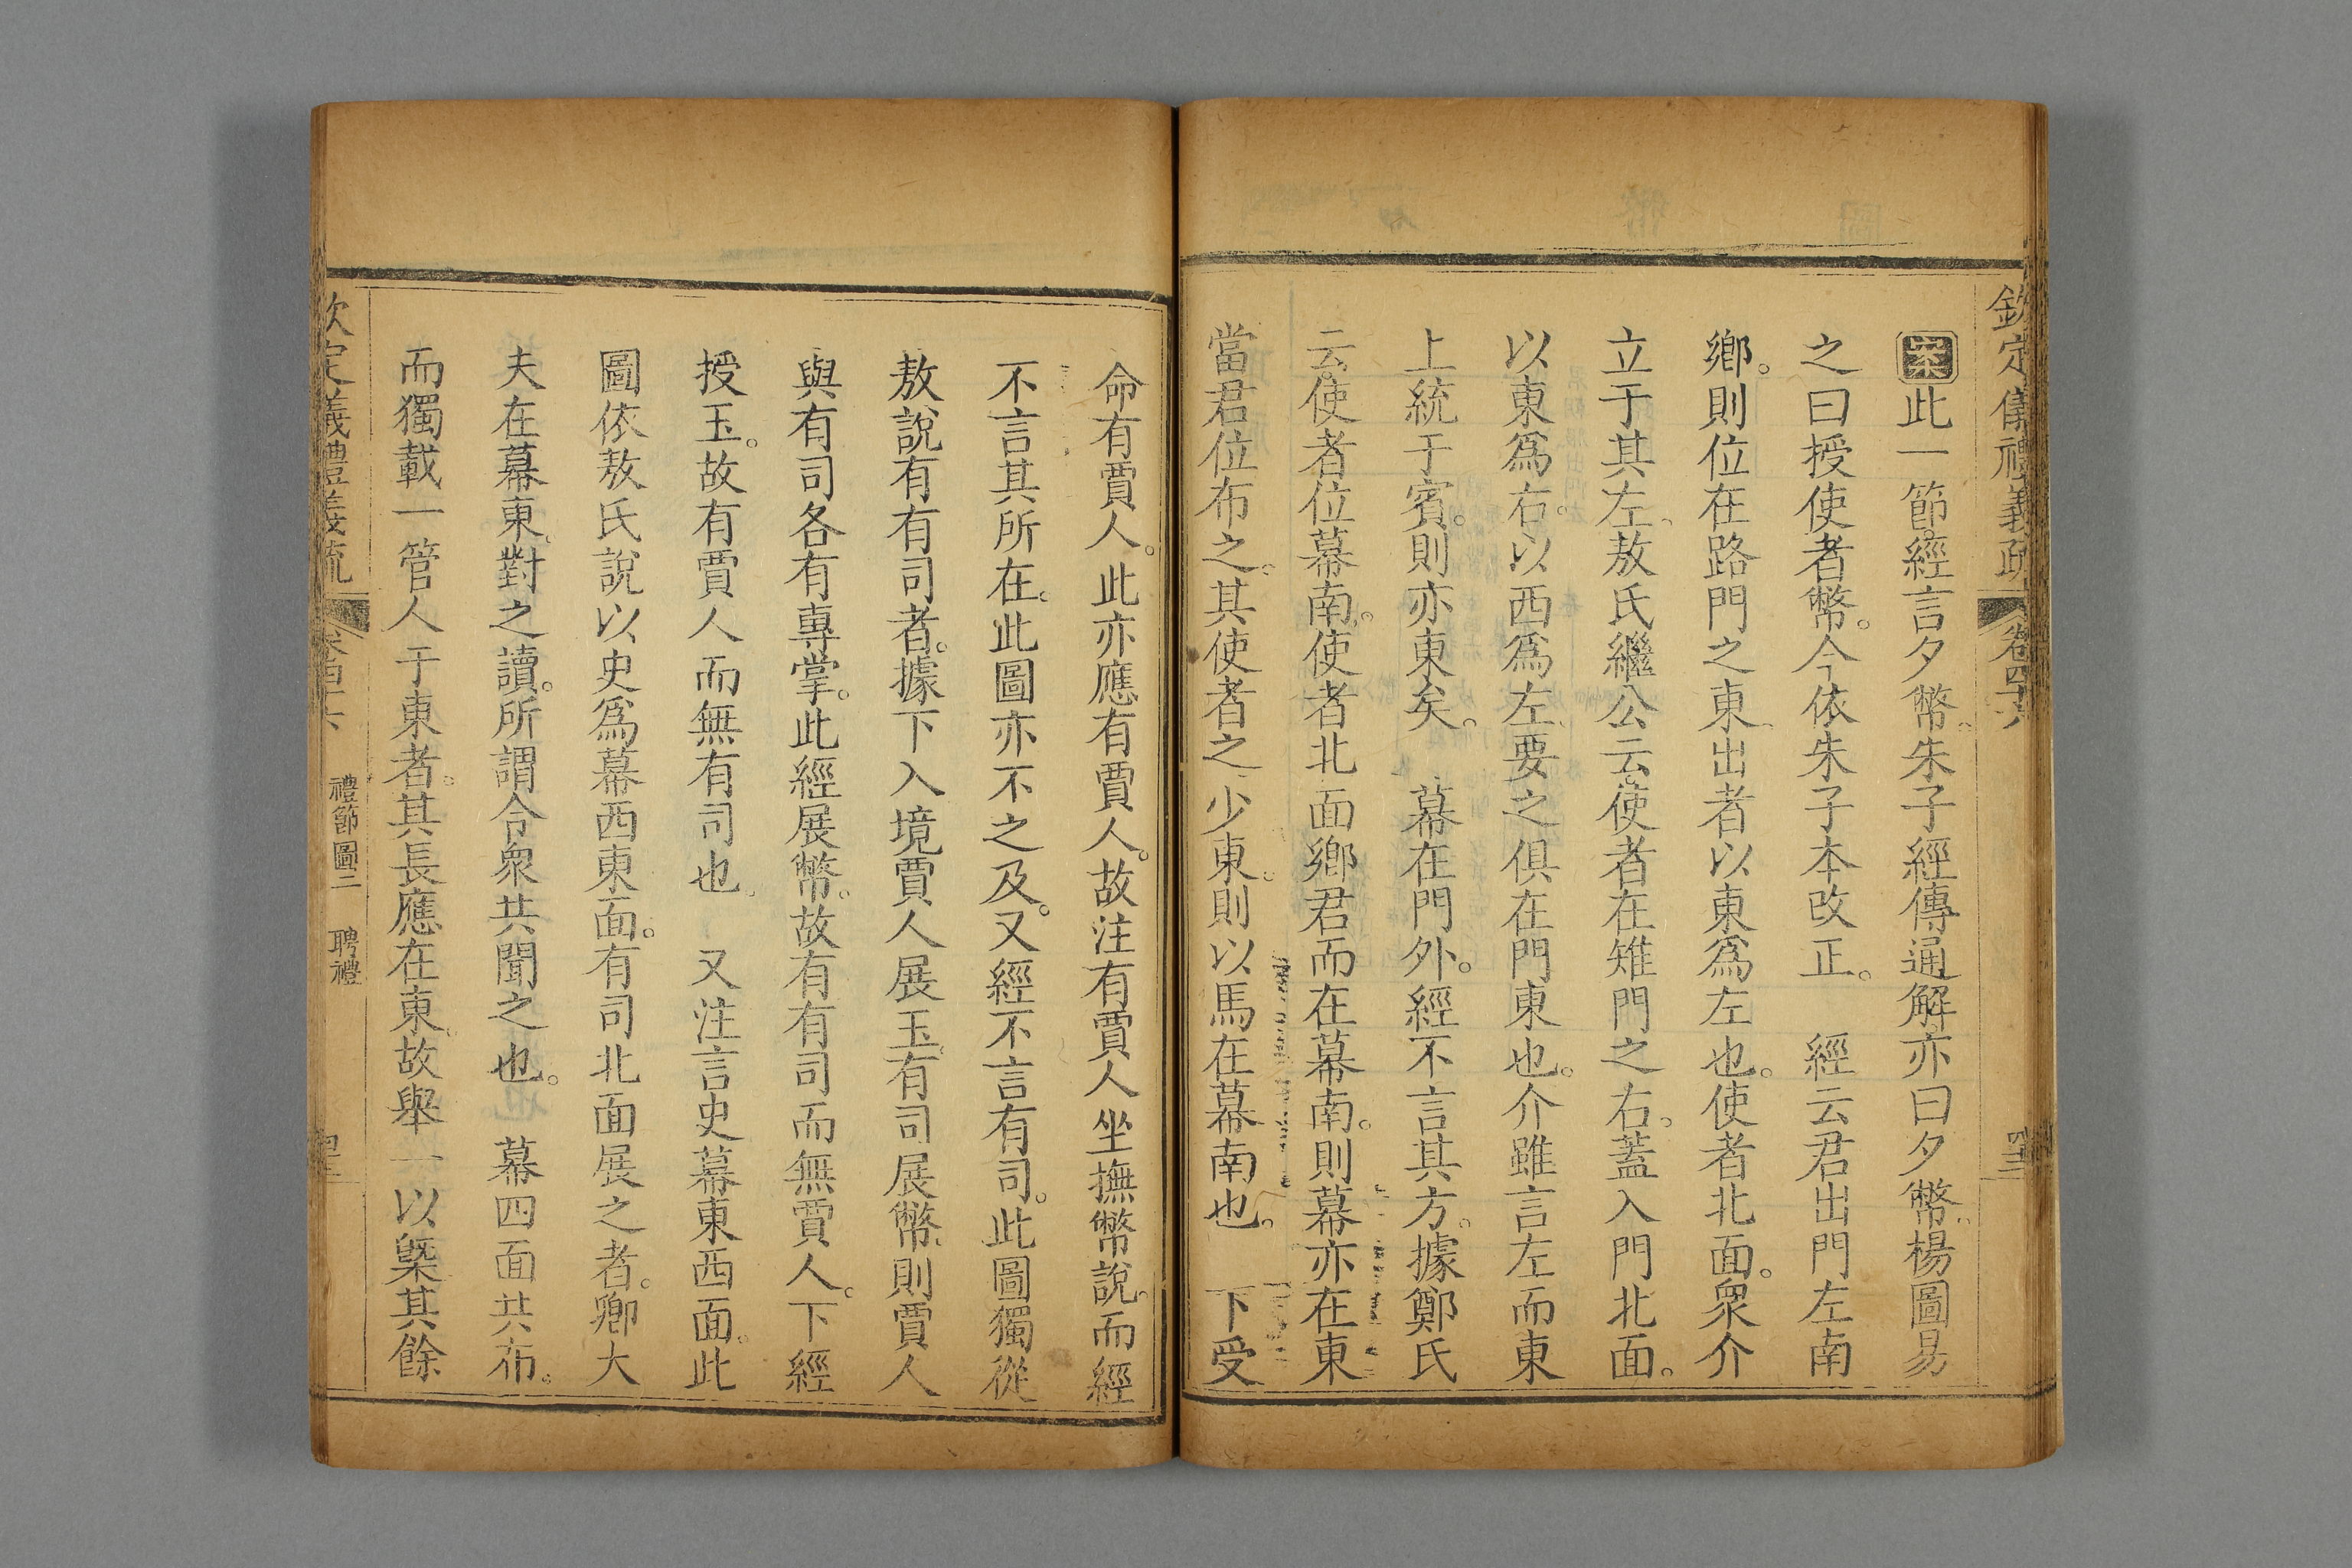 欽定儀禮義疏 卷四十六 四三
案此一節經言夕幣。朱子經傳通解亦曰夕幣。楊圖易
之曰授使者幣。今依朱子本改正。 經云君出門左南
鄉。則位在路門之東、出者以東爲左也。使者北面。衆介
立于其左、敖氏繼公云。使者在雉門之右。蓋入門北面。
以東爲右。以西爲左、要之俱在門東也。介雖言左而東
上統于賓。則亦東矣。 幕在門外。經不言其方。據鄭氏
云。使者位幕南。使者北面鄉君而在幕南。則幕亦在東
當君位布之。其使者之少東。則以馬在幕南也。 下受
命有賈人。此亦應有賈人。故注有賈人坐撫幣說。而經
不言其所在。此圖亦不之及。又經不言有司。此圖獨從
敖說有有司者。據下入境賈人展玉、有司展幣、則賈人
與有司各有專掌。此經展幣。故有有司而無賈人。下經
授玉。故有賈人而無有司也。 又注言史幕東西面。此
圖依敖氏說以史爲幕西東面。有司北面展之者。卿大
夫在幕東、對之讀。所謂令衆共聞之也。 幕四面共布。
而獨載一管人于東者。其長應在東。故舉一以槩其餘
欽定義禮義疏 禮節圖二 聘禮